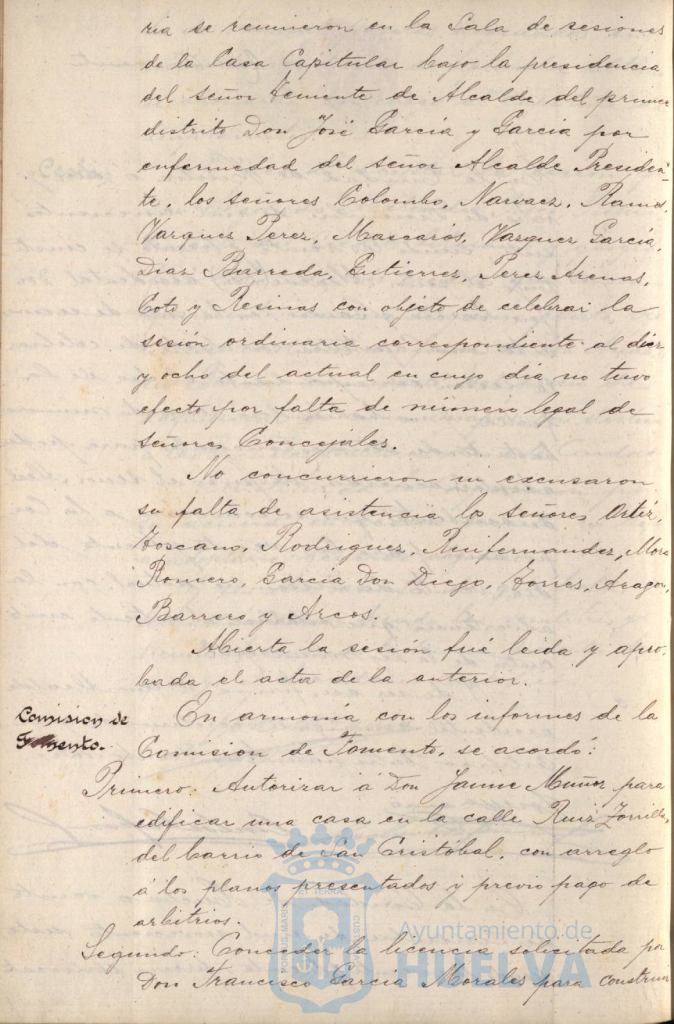 ria se reunieron en la Sala de sesiones
de la Casa Capitular bajo la presidencia
del señor Teniente de Alcalde del primer
distrito Don José García y García por
enfermedad del señor Alcalde Presiden-
te, los señores Colombo, Narvaez, Ramos,
Vazquez Perez, Mascarós, Vazquez García,
Diaz Barreda, Gutierrez, Perez Arenas,
Coto y Resinas con objeto de celebrar la
sesión ordinaria correspondiente al diez
y ocho del actual en cuyo dia no tuvo
efecto por falta de número legal de
señores Concejales.
No concurrieron ni excusaron
su falta de asistencia los señores Ortiz,
Toscano, Rodriguez, Ruifernandez, Mora
Romero, García Don Diego, Torres, Aragon,
Barrero y Arcos.
Abierta la sesión fué leida y apro-
bada el acta de la anterior.
Comision de
Fomento.
En armonía con los informes de la
Comision de Fomento, se acordó:
Primero: Autorizar á Don Jaime Muñoz para
edificar una casa en la calle Ruiz Zorrilla,
del barrio de San Cristóbal, con arreglo
á los planos presentados y previo pago de
arbitrios.
Segundo: Conceder la licencia solicitada por
Don Francisco García Morales para construir
Ayuntamiento de
HUELVA